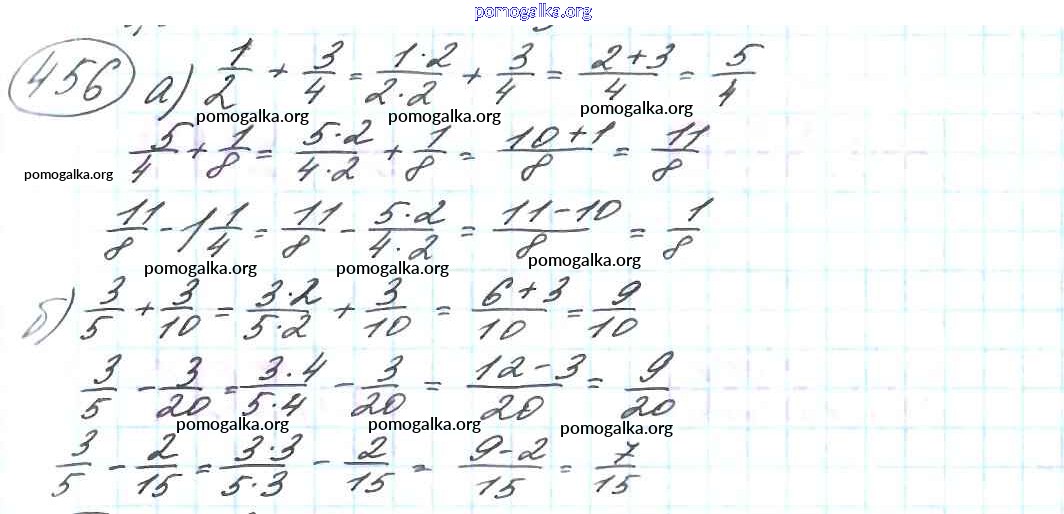 pomogalka.org
456 а) 1/2 + 3/4 = 1·2/2·2 + 3/4 = 2+3/4 = 5/4
pomogalka.org pomogalka.org pomogalka.org
5/4 + 1/8 = 5·2/4·2 + 1/8 = 10+1/8 = 11/8
pomogalka.org
11/8 - 1 1/4 = 11/8 - 5·2/4·2 = 11-10/8 = 1/8
pomogalka.org pomogalka.org pomogalka.org
б) 3/5 + 3/10 = 3·2/5·2 + 3/10 = 6+3/10 = 9/10
3/5 - 3/20 = 3·4/5·4 - 3/20 = 12-3/20 = 9/20
pomogalka.org pomogalka.org pomogalka.org
3/5 - 2/15 = 3·3/5·3 - 2/15 = 9-2/15 = 7/15